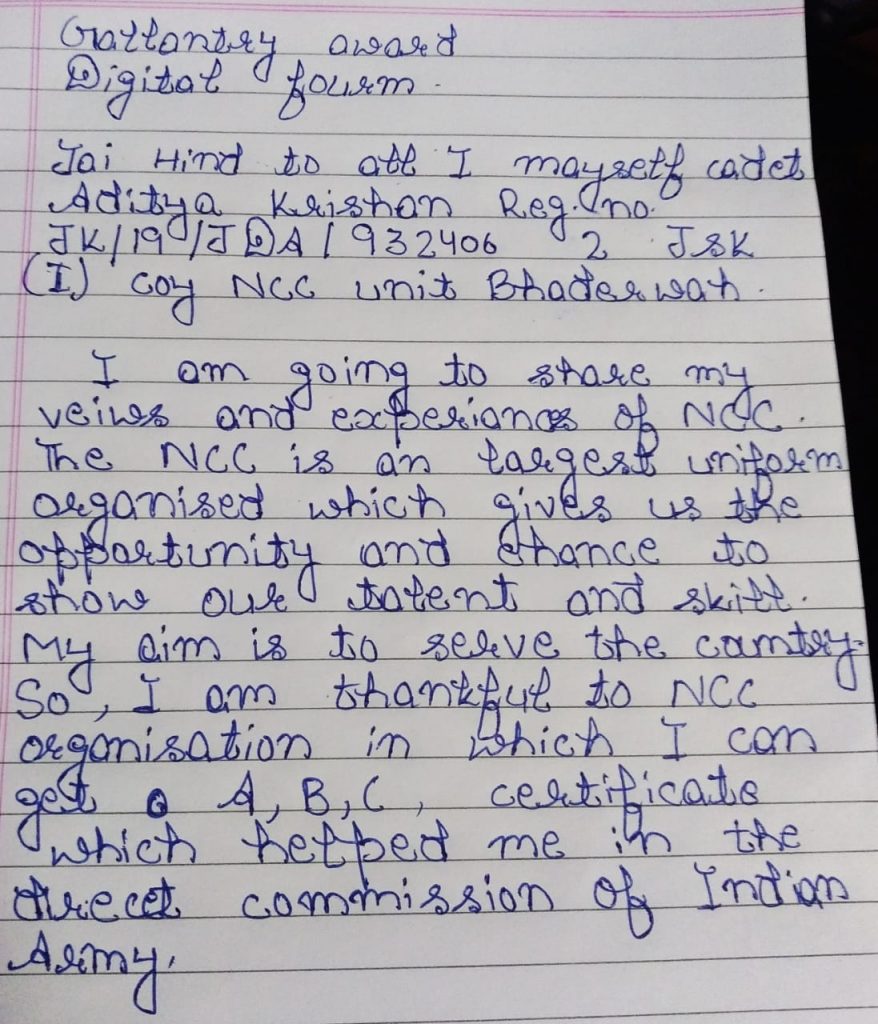 Gallantry award
Digital fourm.
Jai Hind to all I mayself cadet
Aditya Krishan Reg. no.
JK/19/JDA/932406 2 J&K
(I) coy NCC unit Bhaderwah.
I am going to share my
veiws and experiances of NCC.
The NCC is an largest uniform
organised which gives us the
opportunity and chance to
show our talent and skill.
My aim is to serve the camtry.
So, I am thankful to NCC
organisation in which I can
get A, B, C, certificate
which helped me in the
direcet commission of Indian
Army.